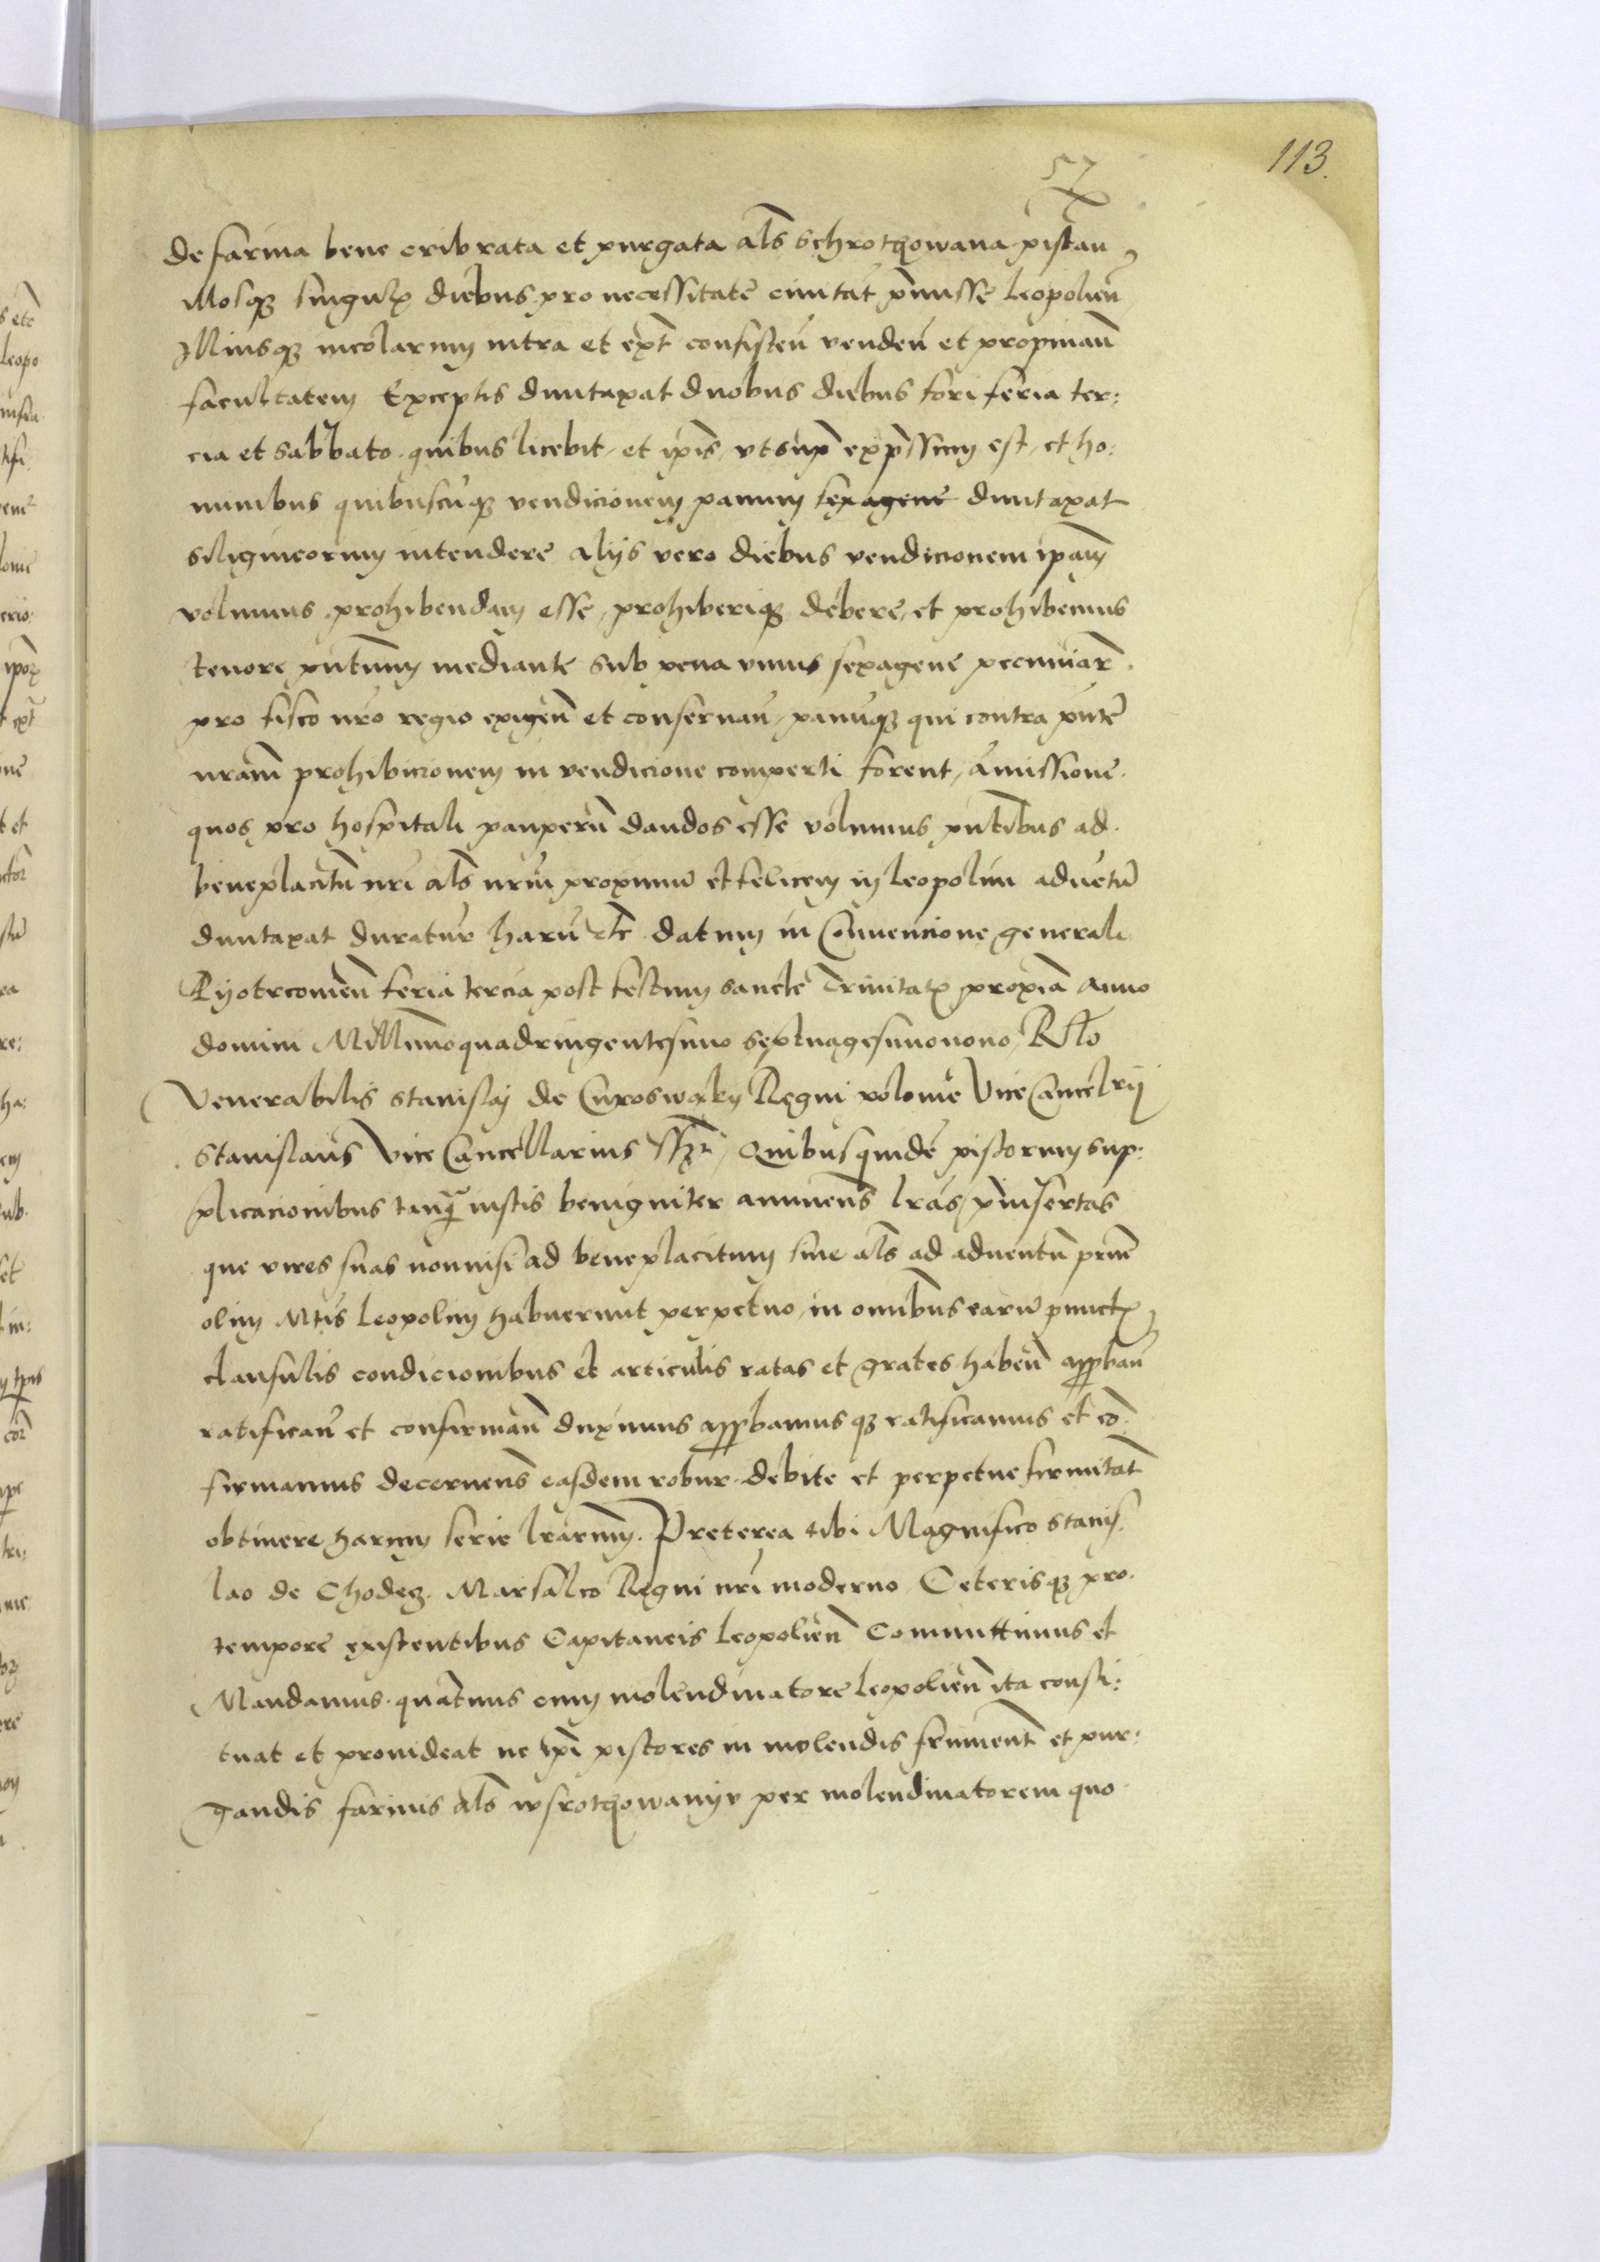 57
113.
de farina bene cribrata et purgata als schrothowana pistan
Illosq singulis diebus pro necessitate civitat p̄misse leopolien
Illiusq incolarum intra et ext consisten venden et propinan
facultatem Exceptis duntaxat duobus diebus fori feria ter:
cia et sabbato quibus licebit et ip̄is vt sup exp̄ssum est et ho:
minibus quibuscuq vendicionem panum sexagene duntaxat
siligineorum intendere alijs vero diebus vendicionem ip̄am
volumus prohibendam esse prohiberiq debere et prohibemus
tenore pn̄tium mediante sub pena vnius sexagene pecuniar
pro fisco nr̄o regio exigen et conservan panuq qui contra pn̄te
nram prohibicionem in vendicione comperti forent amissione
quos pro hospitali pauperu dandos esse volumus pn̄tibus ad
beneplacitu nr̄i als nr̄m proximu et felicem in leopolim aduetu
duntaxat duratur haru etc datum in Convencione generali
Pyotrcovien feria tercia post festum sancte Trinitatis proxia Anno
domini Millimo quadringentesimo septuagesimonono Rlo
Venerabilis stanislaj de Curoswaky Regni polonie Vice Cancelrij
Stanislaus Vice Cancellarius sszt Quibus quide pistorum sup:
plicacionibus tanq iustis benigniter annuens lr̄as p̄insertas
que vires suas nonnisi ad beneplacitum siue als ad aduentu prm̄
olim Mtis leopolim habuerunt perpetuo in omibus earu punctis
clausulis condicionibus et articulis ratas et gratas haben appban
ratifican et confirman duximus appbamus q ratificamus et co:
firmamus decernens easdem robur debite et perpetue firmitat
obtinere harum serie lr̄arum. Preterea tibi Magnifico Stanis
lao de Chodecz Marsalco Regni nr̄i moderno Ceterisq pro
tempore existentibus Capitaneis leopolien Comittimus et
Mandamus quatinus cum molendinatore leopolien ita consti:
tuat et prouideat ne ip̄i pistores in molendis frument et pur:
gandis farinis als wsrothowanyv per molendinatorem quo